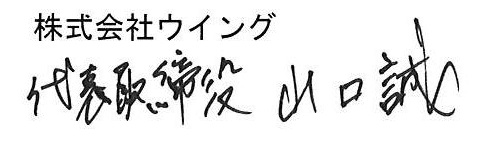 株式会社ウイング
代表取締役 山口誠